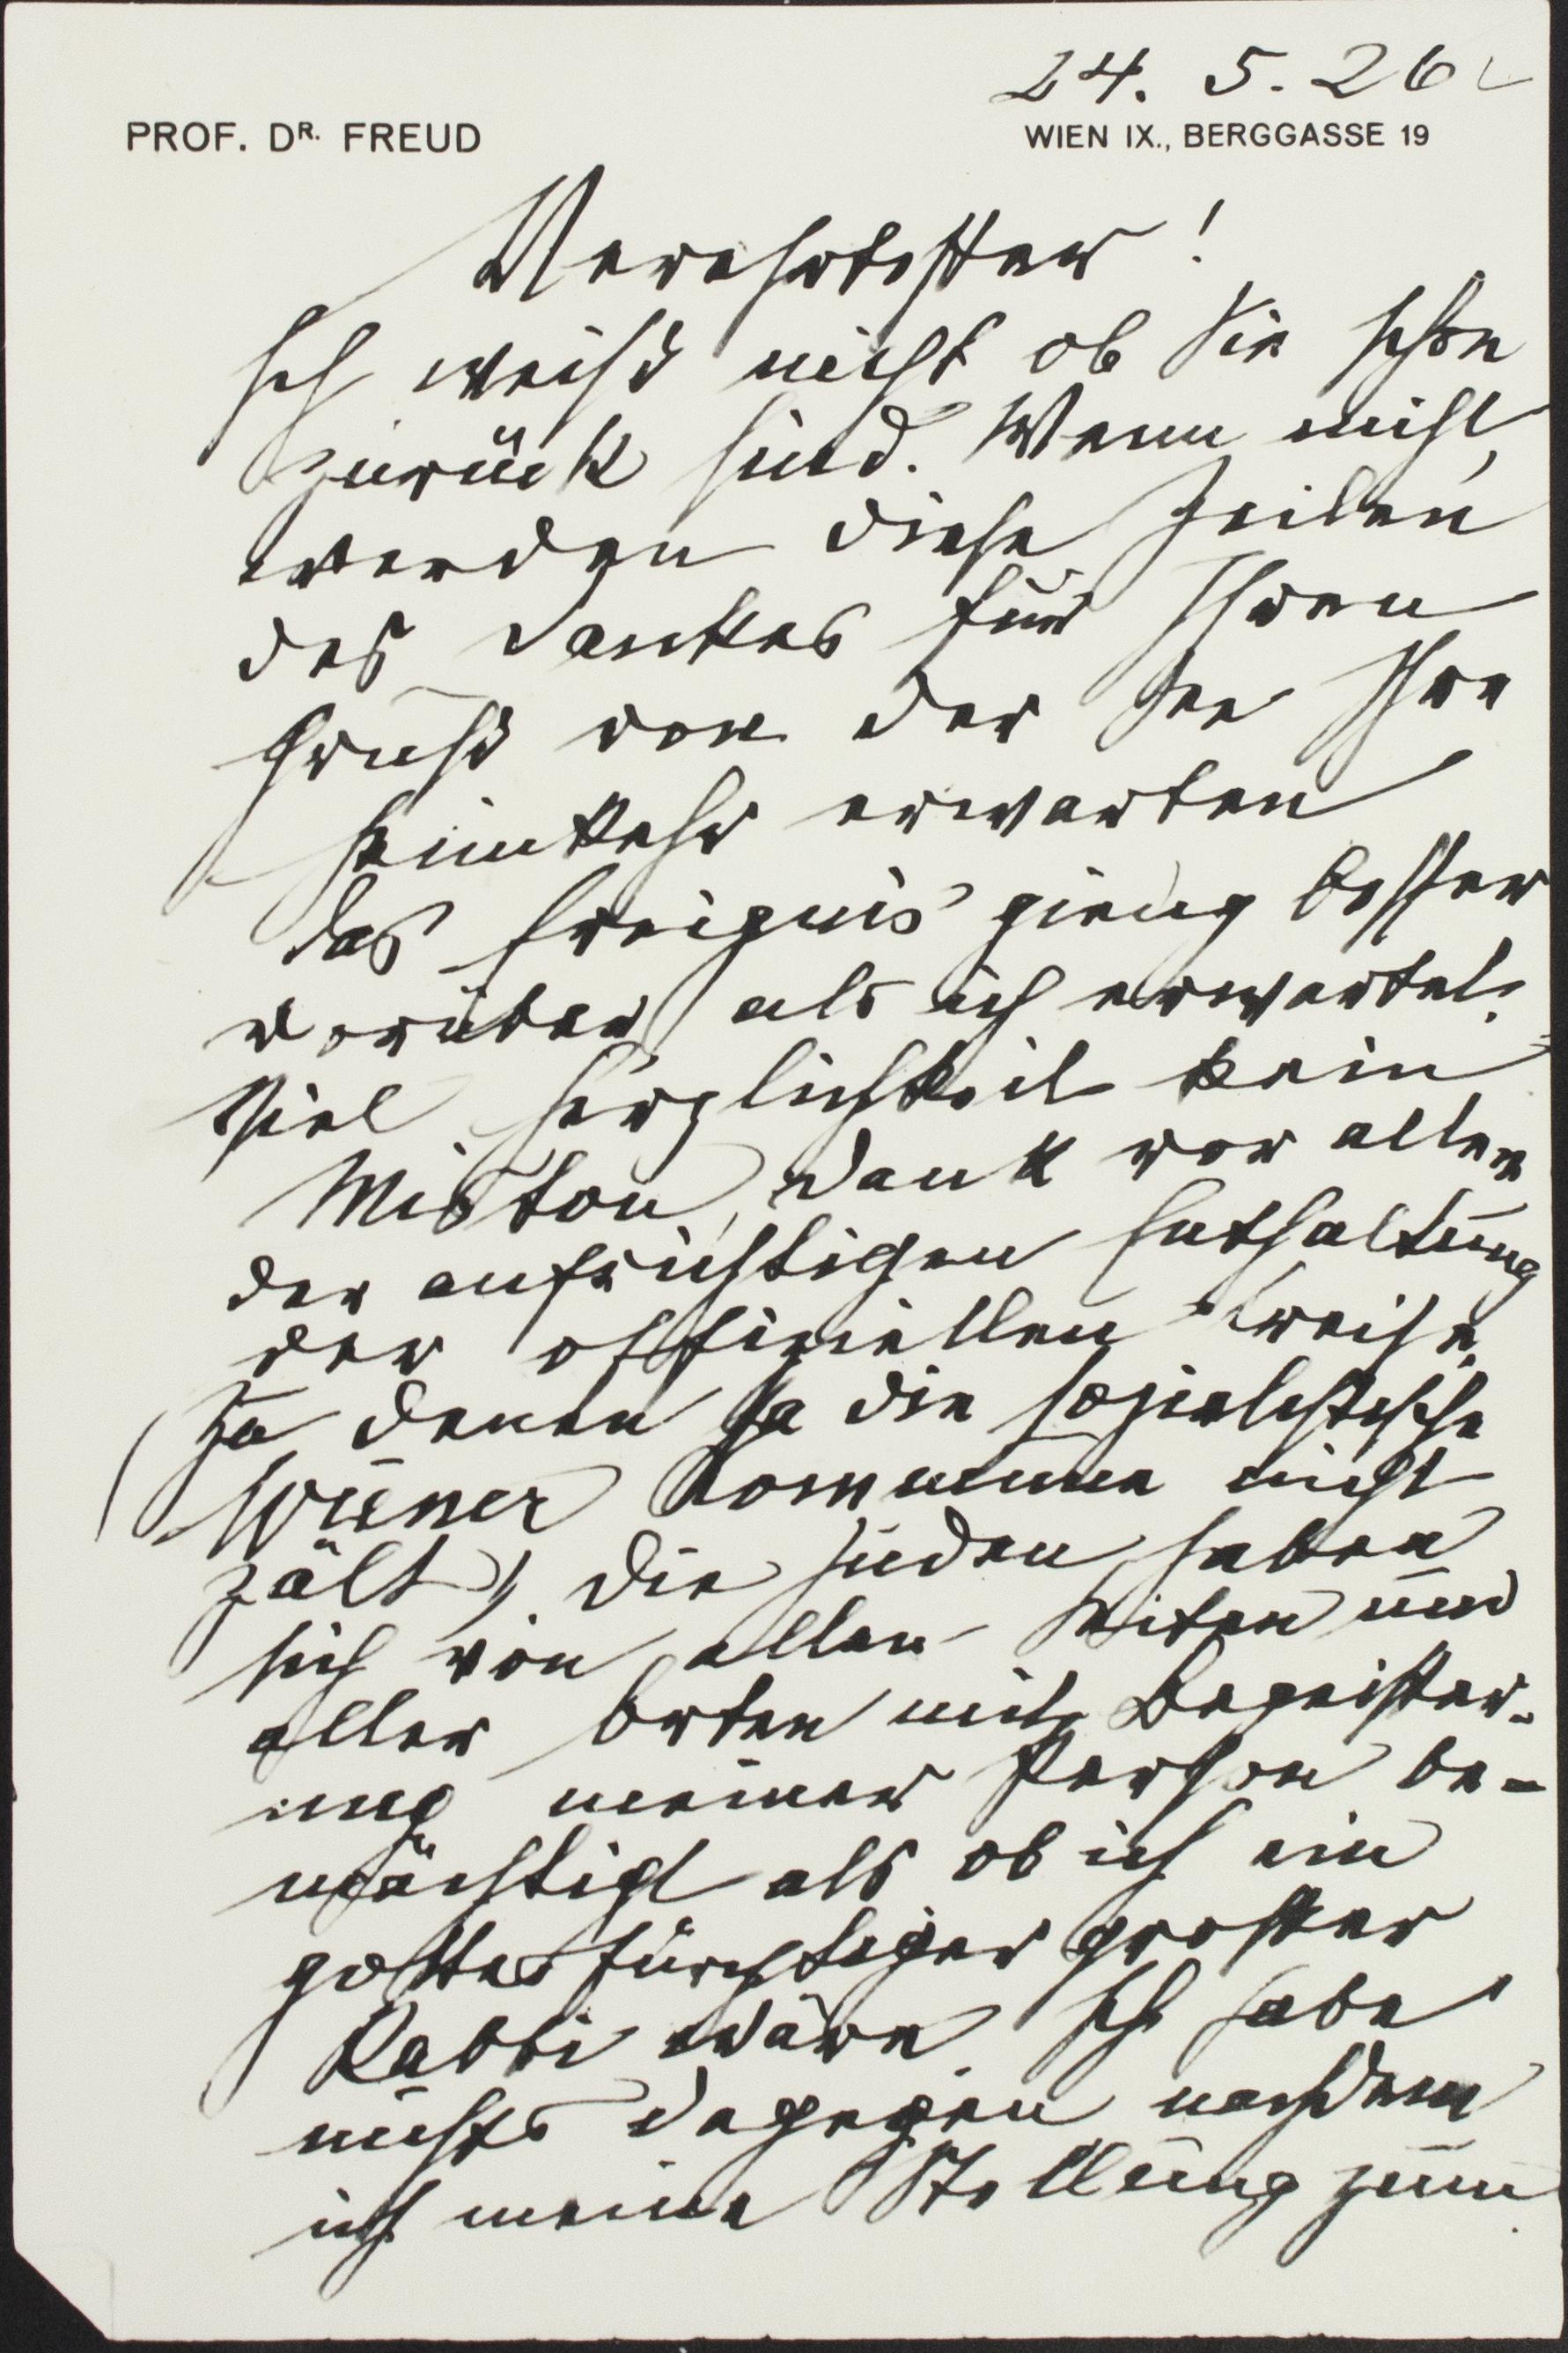 24. 5. 26
PROF. DR. FREUD
WIEN IX., BERGGASSE 19
Verehrtester!
Ich weiß nicht ob Sie schon
zurück sind. Wenn nicht,
werden diese Zeilen
des Dankes für Ihren
Gruß von der See Ihre
Heimkehr erwarten
Das Ereignis gieng besser
vorüber als ich erwartet.
Viel Herzlichkeit kein
Mißton, Dank vor allem
der aufrichtigen Enthaltung
der offiziellen Kreise
(zu denen ja die sozialistische
Wiener Kommune nicht
zält). Die Juden haben
sich von allen Seiten und
aller Orten mit Begeister-
ung meiner Person be-
mächtigt als ob ich ein
gottesfürchtiger großer
Rabbi wäre. Ich habe
nichts dagegen nachdem
ich meine Stellung zum